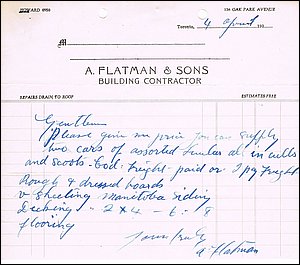 HOWARD 0950
134 OAK PARK AVENUE
Toronto, 4 April 193
M
A. FLATMAN & SONS
BUILDING CONTRACTOR
REPAIRS DRAIN TO ROOF
ESTIMATES FREE
Gentlemen
Please give me price you can supply
two cars of assorted in culls
and scoots. Cod. fright paid or I pay fright
Rough & dressed boards
V Sheeting Manitoba Siding
Decking - 2 x 4 - 6 - 8
flooring
Yours truly
A Flatman